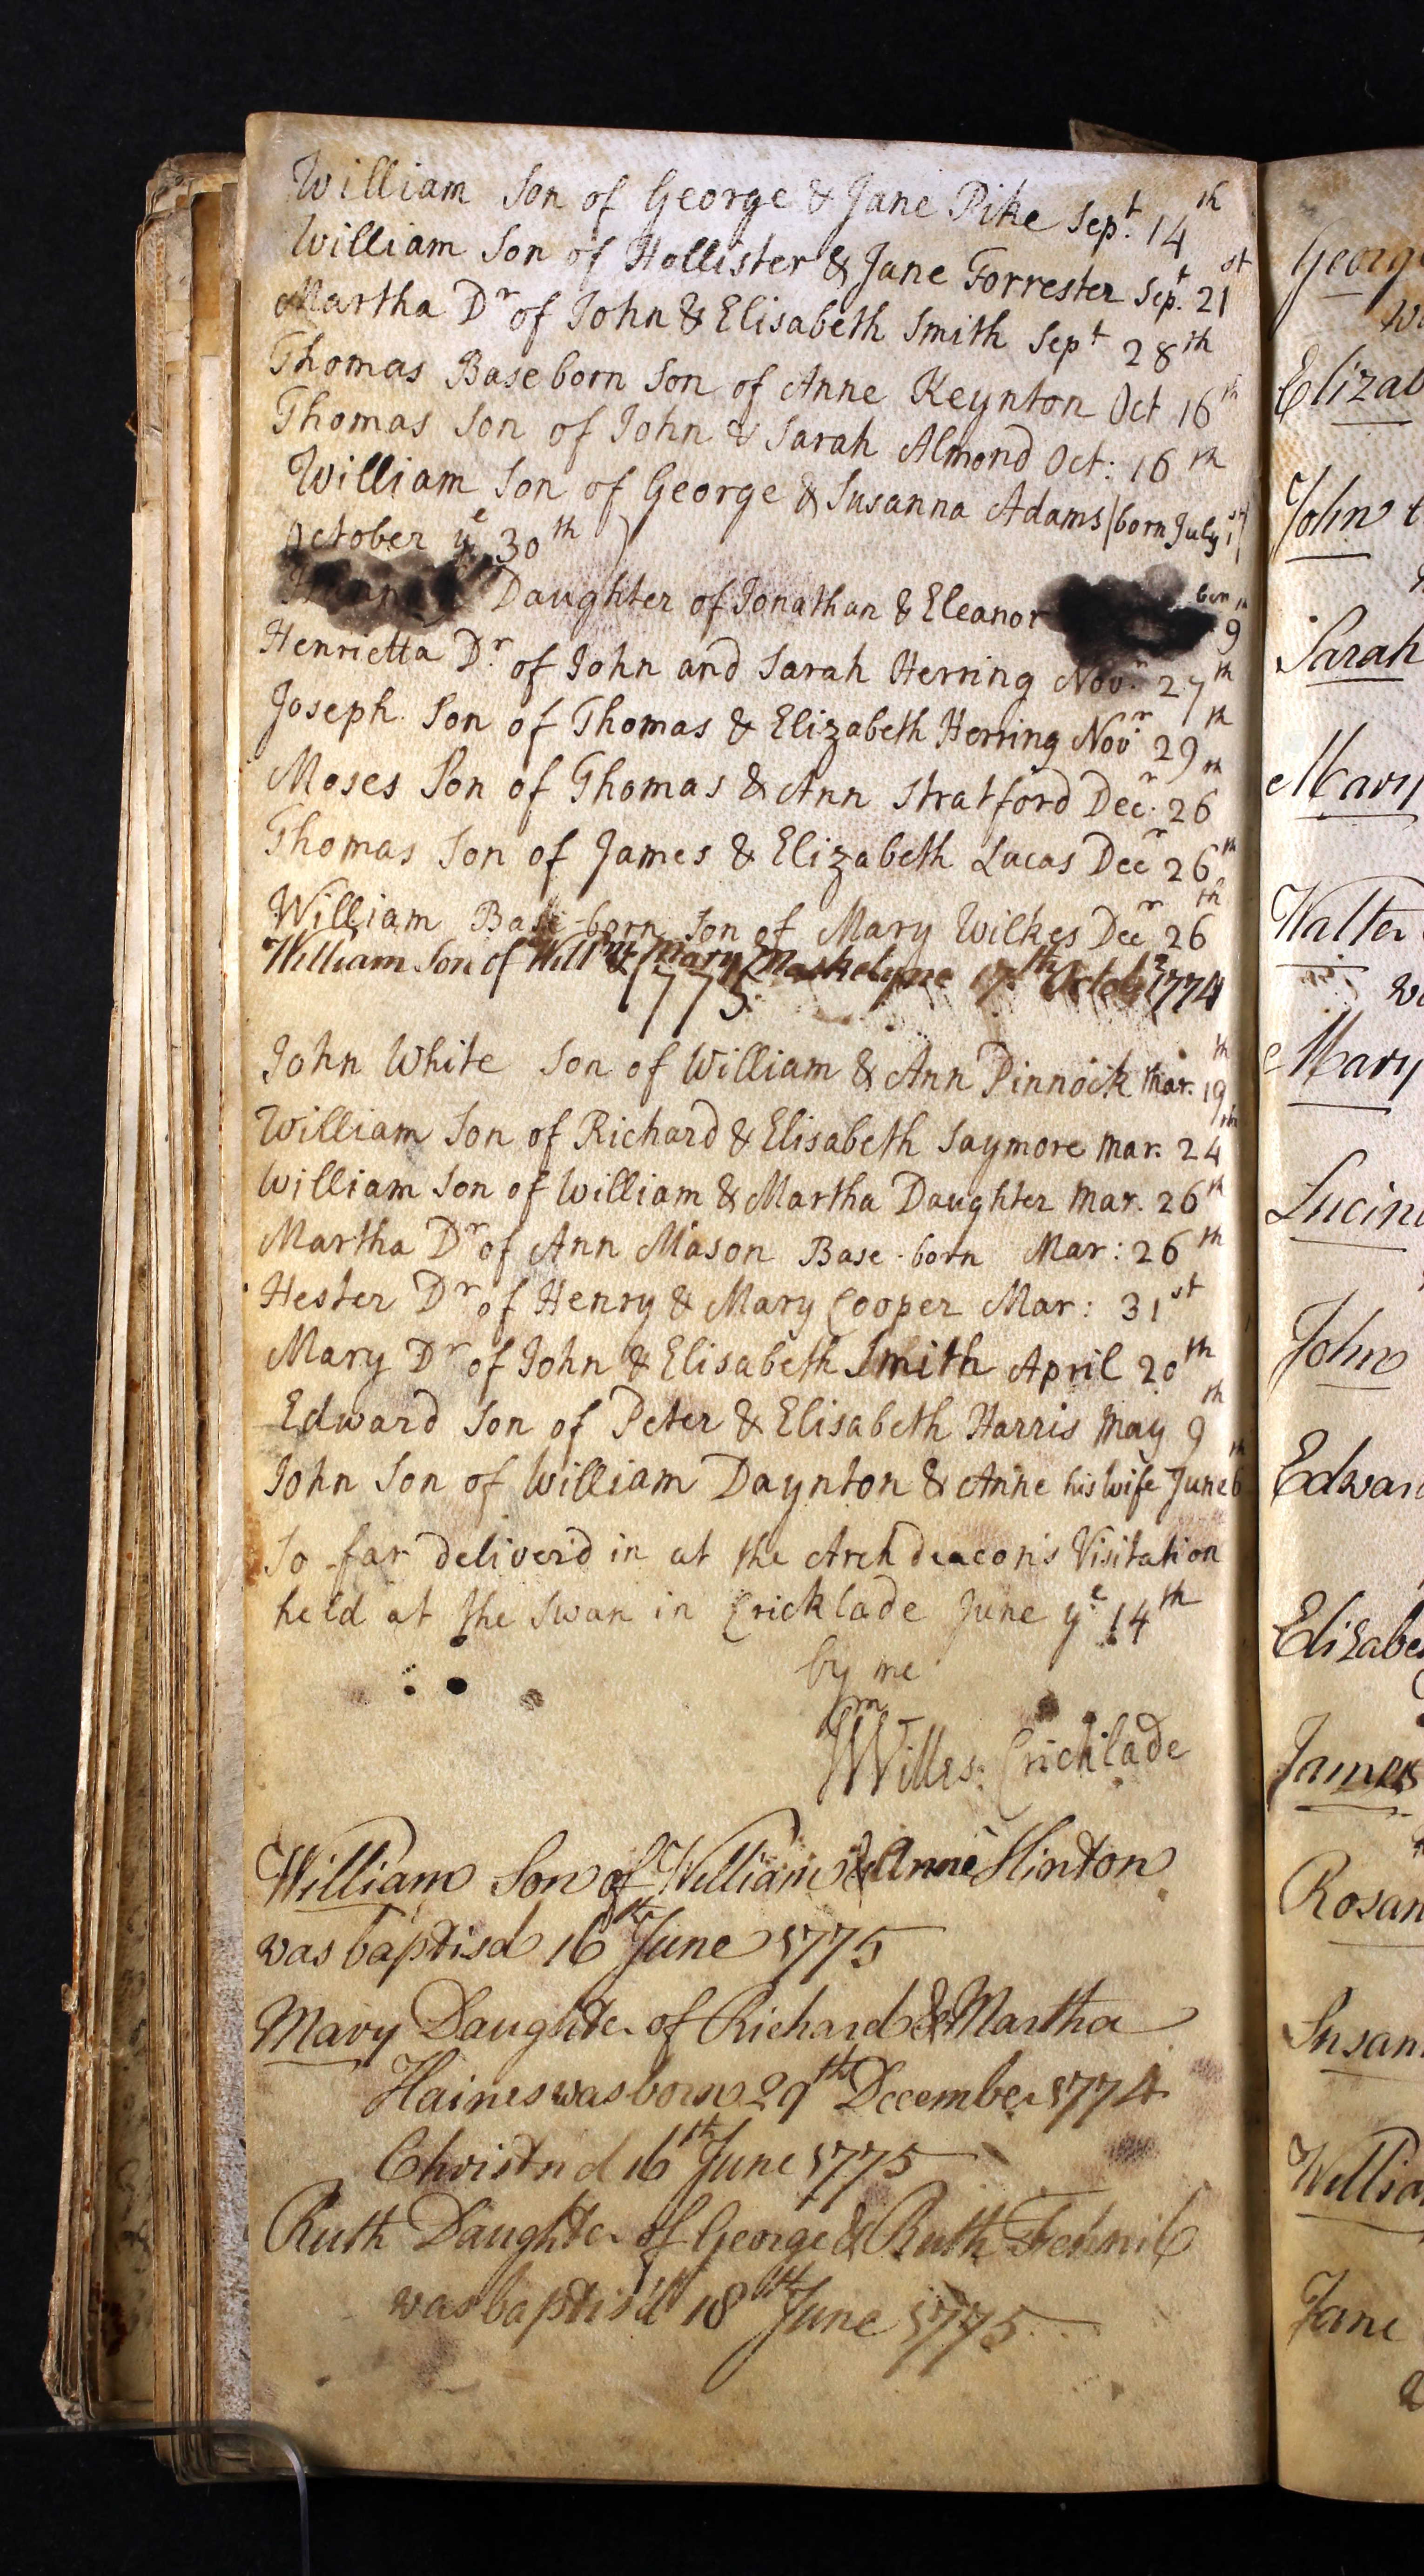 William Son of George & Jane Pike Sept. 14th
William Son of Hollister & Jane Forrester Sept. 21st
Martha Dr of John & Elisabeth Smith Sept 28th
Thomas Baseborn Son of Anne Keynton Oct 16th
Thomas Son of John & Sarah Almond Oct: 16th
William Son of George & Susanna Adams (born July 1st)
October ye 30th
Daughter of Jonathan & Eleanor 9
Henrietta Dr. of John and Sarah Herring Novr. 27th
Joseph Son of Thomas & Elizabeth Herring Novr 29th
Moses Son of Thomas & Ann Stratford Decr. 26th
Thomas Son of James & Elizabeth Lucas Decr 26th
William Base-born Son of Mary Wilkes Decr 26th
William Son of Willm & Mary Maskelyne 17th Octobr 1774
1775
John White Son of William & Ann Pinnock Mar. 19th
William Son of Richard & Elisabeth Saymore Mar. 24th
William Son of William & Martha Daughter Mar. 26th
Martha Dr of Ann Mason Base-born Mar: 26th
Hester Dr of Henry & Mary Cooper Mar: 31st
Mary Dr of John & Elisabeth Smith April 20th
Edward Son of Peter & Elisabeth Harris May 9th
John Son of William Daynton & Anne his wife June 6th
So far deliver'd in at the Archdeacon's Visitation
held at the Swan in Cricklade June ye 14th
by me
Wm Willes. Cricklade
William Son of William & Anne Hinton
was baptisd 16th June 1775
Mary Daughter of Richard & Martha
Haines was born 29th December 1774
Christnd 16th June 1775
Ruth Daughter of George & Ruth
was baptis'd 18th June 1775
George
Elizab
John
Sarah
Mary
Walter
Mary
Lucin
John
Edwar
Elizabe
James
Rosan
Susan
Willia
Jane